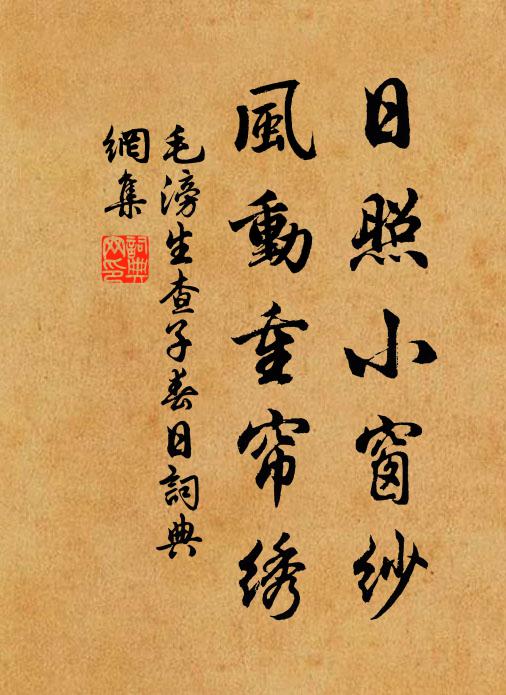 日照小窗紗
風動重帘绣
毛滂生查子春日詞典
網集
詞典网印